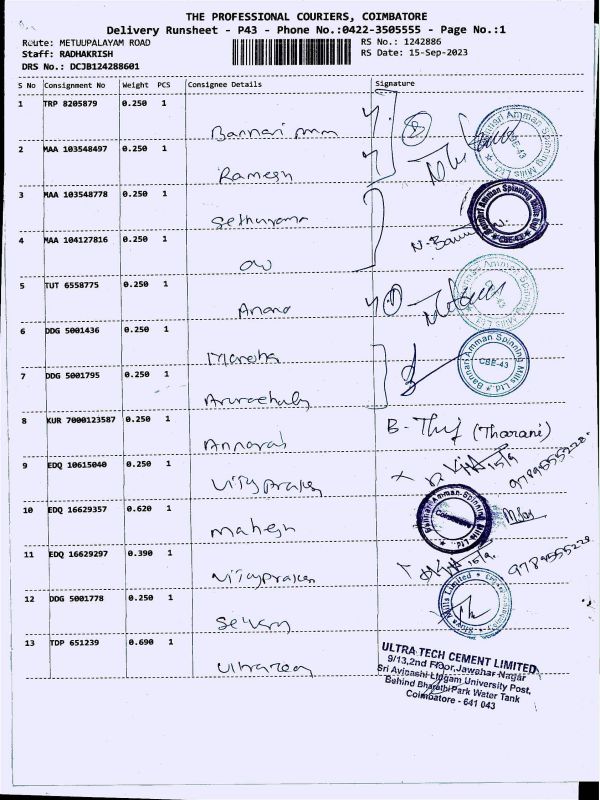 THE PROFESSIONAL COURIERS, COIMBATORE
Delivery Runsheet - P43 - Phone No.:0422-3505555 - Page No.:1
Route: METUUPALAYAM ROAD RS No.: 1242886
Staff: RADHAKRISH RS Date: 15-Sep-2023
DRS No.: DCJB124288601
S No Consignment No Weight PCS Consignee Details Signature
1 TRP 8205879 0.250 1
Bannari Amm
2 MAA 103548497 0.250 1
Ramesh
3 MAA 103548778 0.250 1
4 MAA 104127816 0.250 1
5 TUT 6558775 0.250 1
Anand
6 DDG 5001436 0.250 1
Bannari Amman Spinning Mills Ltd. CBE-43
7 DDG 5001795 0.250 1
8 KUR 7000123587 0.250 1
B. (Tharani)
9 EDQ 10615040 0.250 1
Vijyprakash 15/9 9789555228
10 EDQ 16629357 0.620 1
Mahesh
11 EDQ 16629297 0.390 1
Vijyprakash 15/9 9789555228
12 DDG 5001778 0.250 1
Selvam
13 TDP 651239 0.690 1
Ultratech
ULTRA TECH CEMENT LIMITED
9/13,2nd Floor,Jawahar Nagar
Sri Avinashi Lingam University Post,
Behind Bharathi Park Water Tank
Coimbatore - 641 043